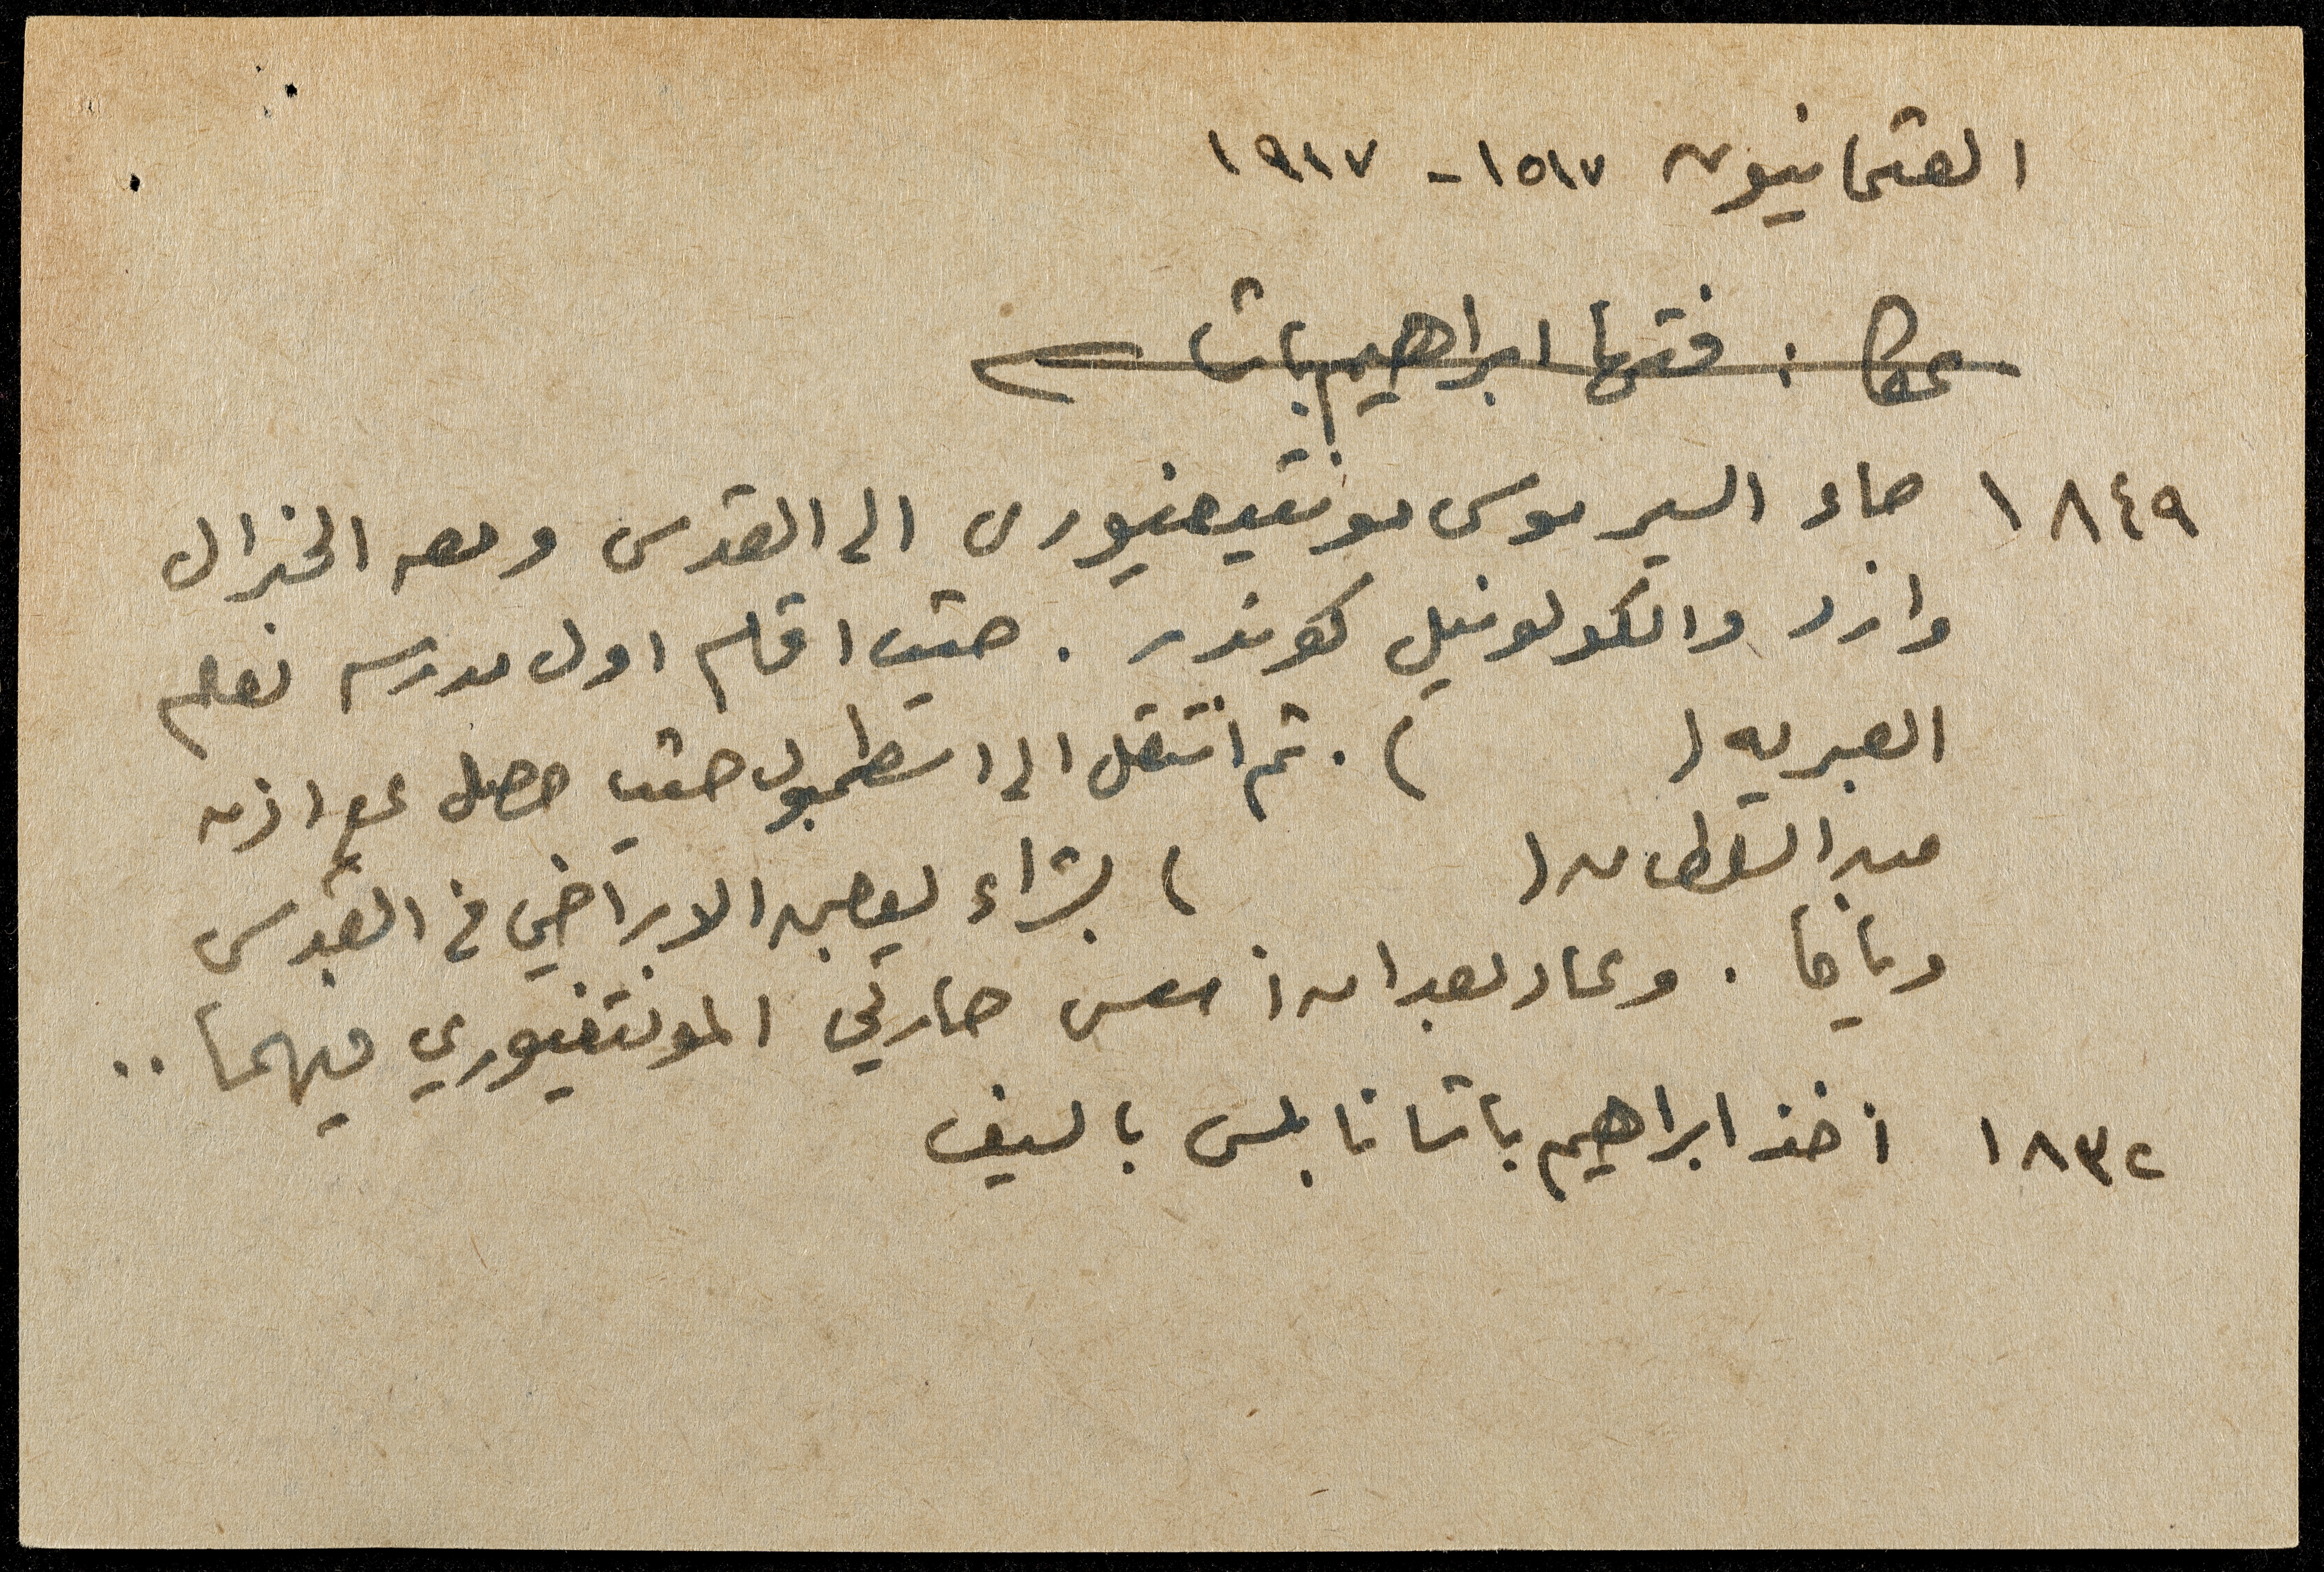 العثمانيون ١٥١٧ - ١٩١٧
عكا : فتحها ابراهيم باشا
١٨٤٩ جاء السير موسى مونتيفيوري الى القدس ومعه الجنرال
وارد والكولونيل كوندر . حيث اقام اول مدرسه تعلم
العبريه (          ) . ثم انتقل الى استطمبول حيث حصل على اذن
من السلطان (          ) بشراء بعض الاراضي في القدس
ويافا . وعاد بعد ان اسس حارتي المونتفيوري فيهما ..
١٨٣٢ أخذ ابراهيم باشا نابلس بالسيف